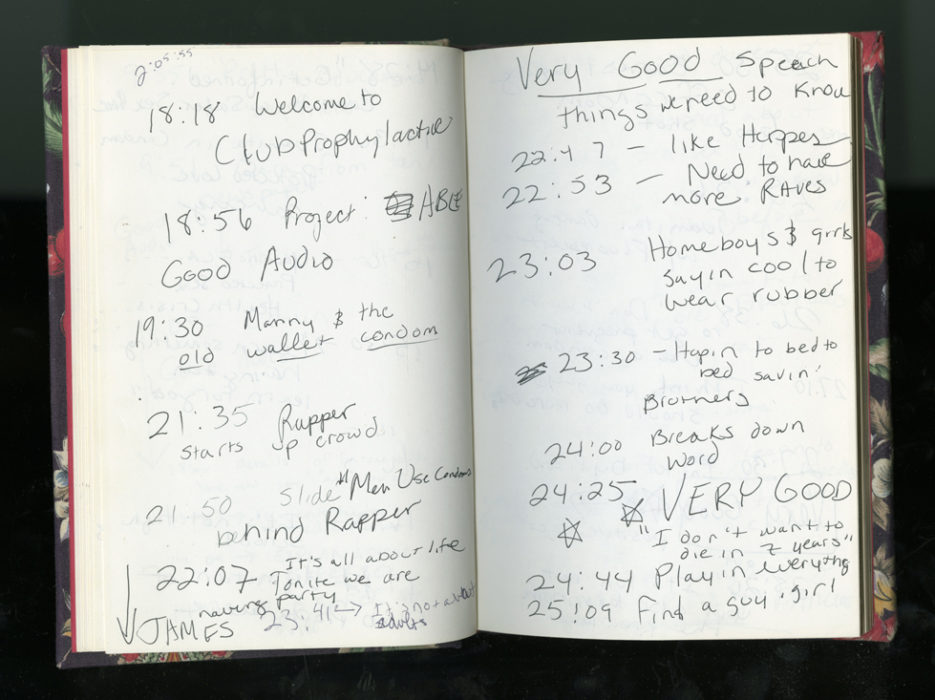 2:05:55
18:18 Welcome to
Club Prophylactive
18:56 Project: ABLE
GOOD AUDIO
19:30 Manny & the
old wallet condom
21:35 Rapper
starts up crowd
21:50 Slide "Men Use Condoms
behind Rapper
22:07 - It's all about life
Tonite we are
having party
23:41 → It's not about
adults
JAMES
Very Good Speech
things we need to know
22:47 - like Herpes
22:53 - Need to have
more RAVES
23:03 Homeboys & grrls
sayin cool to
wear rubber
23:30 - Hopin to bed to
bed savin'
Brothers
24:00 Breaks down
word
24:25 VERY GOOD
"I don't want to
die in 7 years"
24:44 Playin everythg
25:09 Find a guy, girl